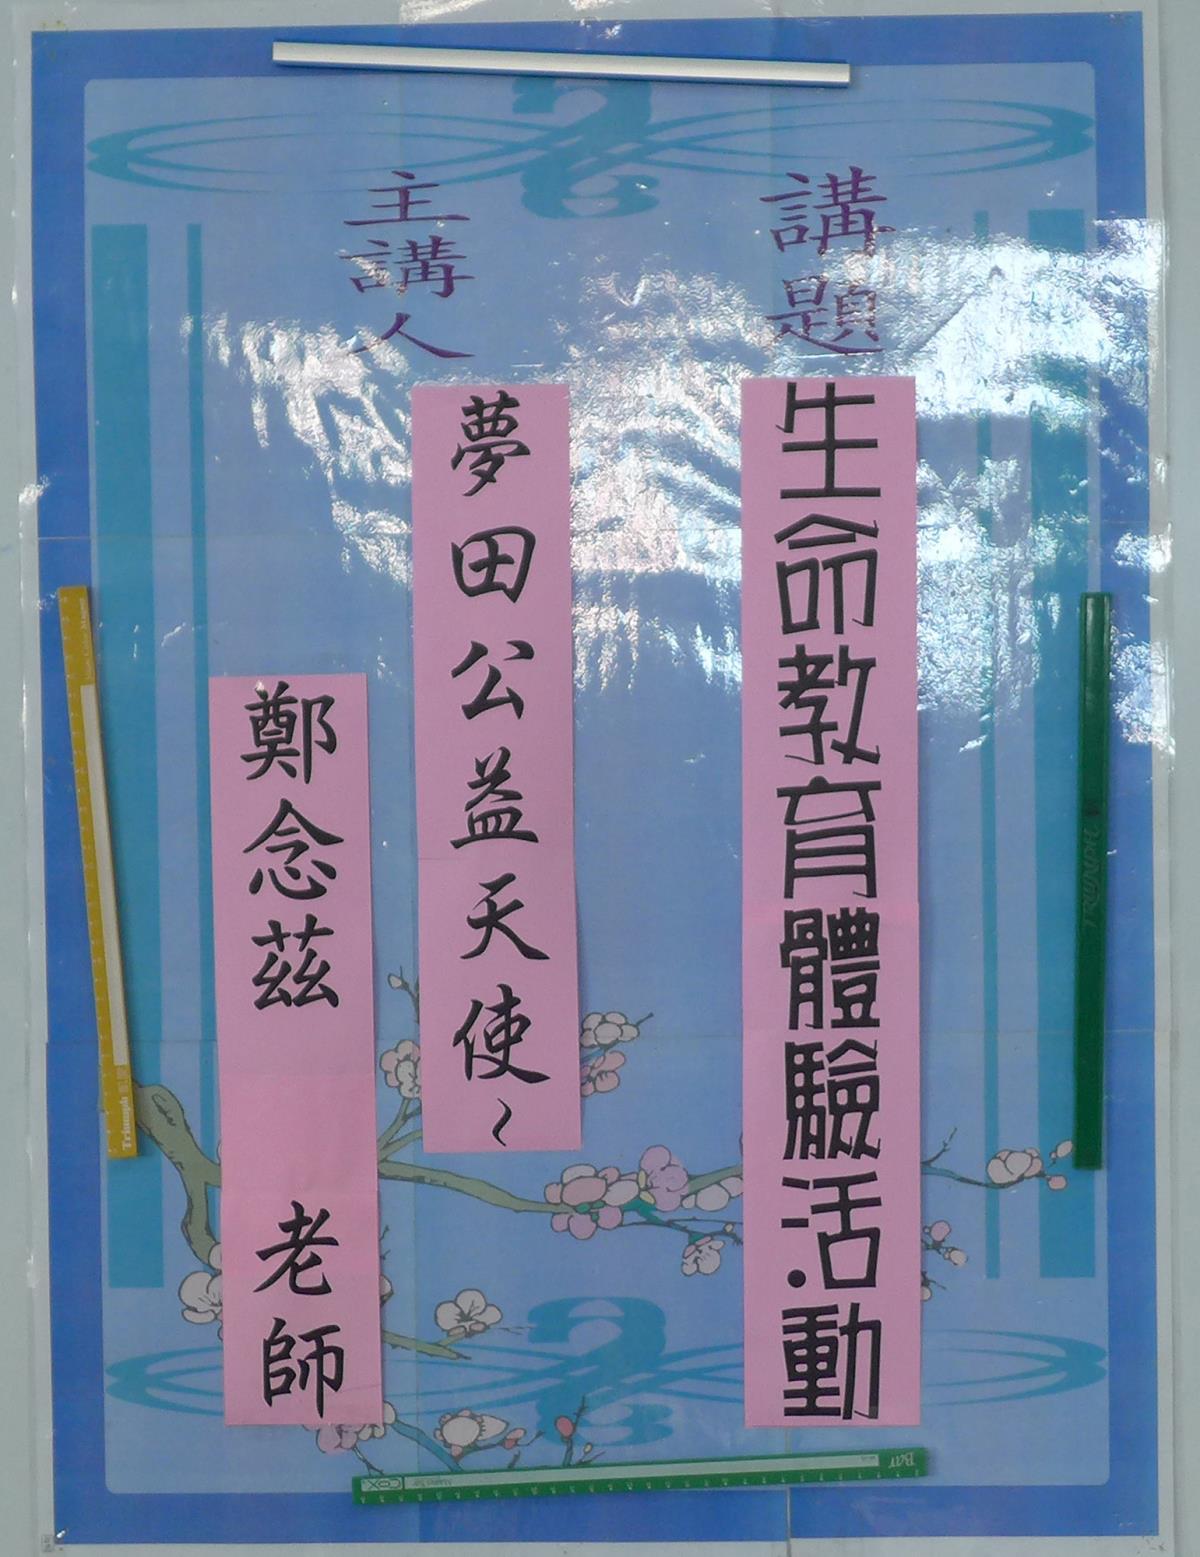 講題
生命教育體驗活動
主講人
夢田公益天使~
鄭念茲 老師
Triumph
COX